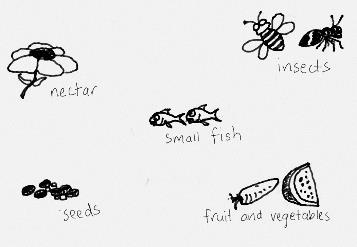 insects
nectar
small fish
seeds
fruit and vegetables